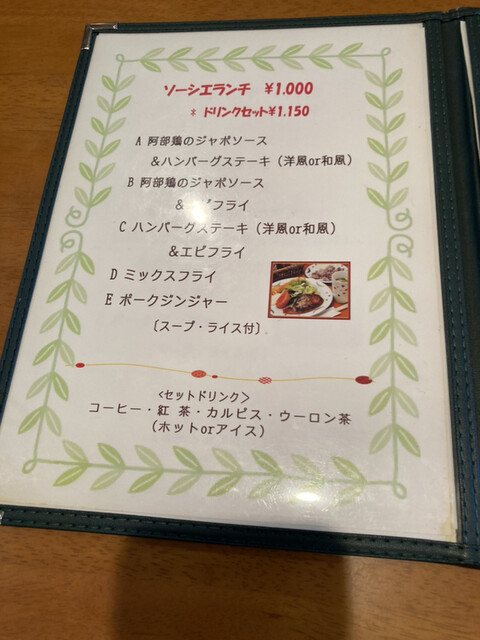 ソーシエランチ ¥1.000
* ドリンクセット¥1.150
A 阿部鶏のジャポソース
&ハンバーグステーキ (洋風or和風)
B 阿部鶏のジャポソース
&エビフライ
C ハンバーグステーキ (洋風or和風)
&エビフライ
D ミックスフライ
E ポークジンジャー
〔スープ・ライス付〕
<セットドリンク>
コーヒー・紅 茶・カルピス・ウーロン茶
(ホットorアイス)